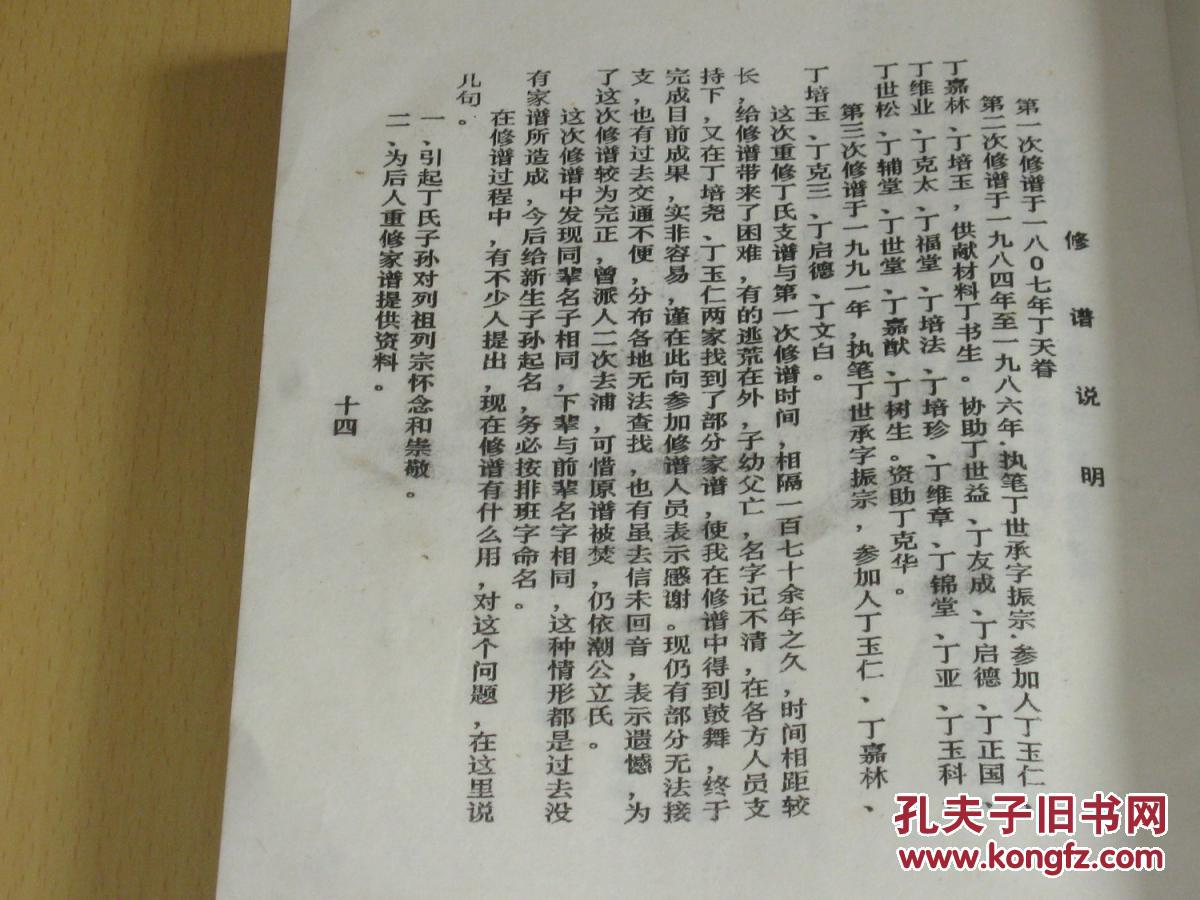 修谱说明
第一次修谱于一八0七年丁天眷
第二次修谱于一九八四年至一九八六年.执笔丁世承字振宗.参加人丁玉仁、
丁嘉林、丁培玉，供献材料丁书生。协助丁世益、丁友成、丁启德、丁正国、
丁维业、丁克太、丁福堂、丁培法、丁培珍、丁维章、丁锦堂、丁亚、丁玉科、
丁世松、丁辅堂、丁世堂、丁嘉猷、丁树生。资助丁克华。
第三次修谱于一九九一年，执笔丁世承字振宗，参加人丁玉仁、丁嘉林、
丁培玉、丁克三、丁启德、丁文白。
这次重修丁氏支谱与第一次修谱时间，相隔一百七十余年之久，时间相距较
长，给修谱带来了困难，有的逃荒在外，子幼父亡，名字记不清，在各方人员支
持下，又在丁培尧、丁玉仁两家找到了部分家谱，使我在修谱中得到鼓舞，终于
完成目前成果，实非容易，谨在此向参加修谱人员表示感谢。现仍有部分无法接
支，也有过去交通不便，分布各地无法查找，也有虽去信未回音，表示遗憾，为
了这次修谱较为完正，曾派人二次去浦，可惜原谱被焚，仍依潮公立氏。
这次修谱中发现同辈名子相同，下辈与前辈名字相同，这种情形都是过去没
有家谱所造成，今后给新生子孙起名，务必按排班字命名。
在修谱过程中，有不少人提出，现在修谱有什么用，对这个问题，在这里说
儿句。
一、引起丁氏子孙对列祖列宗怀念和崇敬。
二、为后人重修家谱提供资料。
十四
孔夫子旧书网
www.kongfz.com